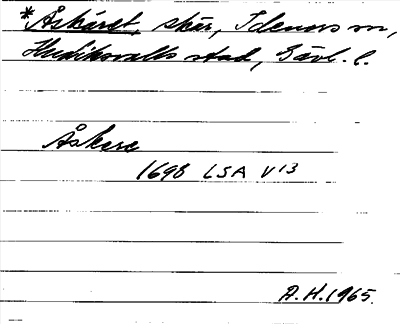 *Åskäret, skär, Idenors sn,
Hudiksvalls stad, Gävl. l.
Åskere
1698 LSA V13
A.H. 1965.